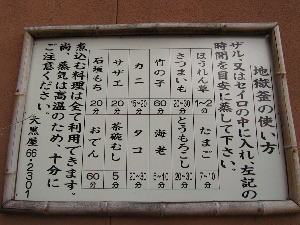 地獄釜の使い方
ザル、又はセイロの中に入れ、左記の
時間を目安に蒸して下さい。
ほうれん草 1~2分
さつまいも 20~30分
竹の子 60分
カニ 15~20分
サザエ 20分
石垣もち 20分
たまご 7~10分
とうもろこし 20~30分
海老 5~10分
タコ 20~30分
茶碗むし 5分
おでん 60分
煮込む料理は全て利用できます。
尚、蒸気は高温のため、十分に
ご注意ください。
大黒屋 66-2301